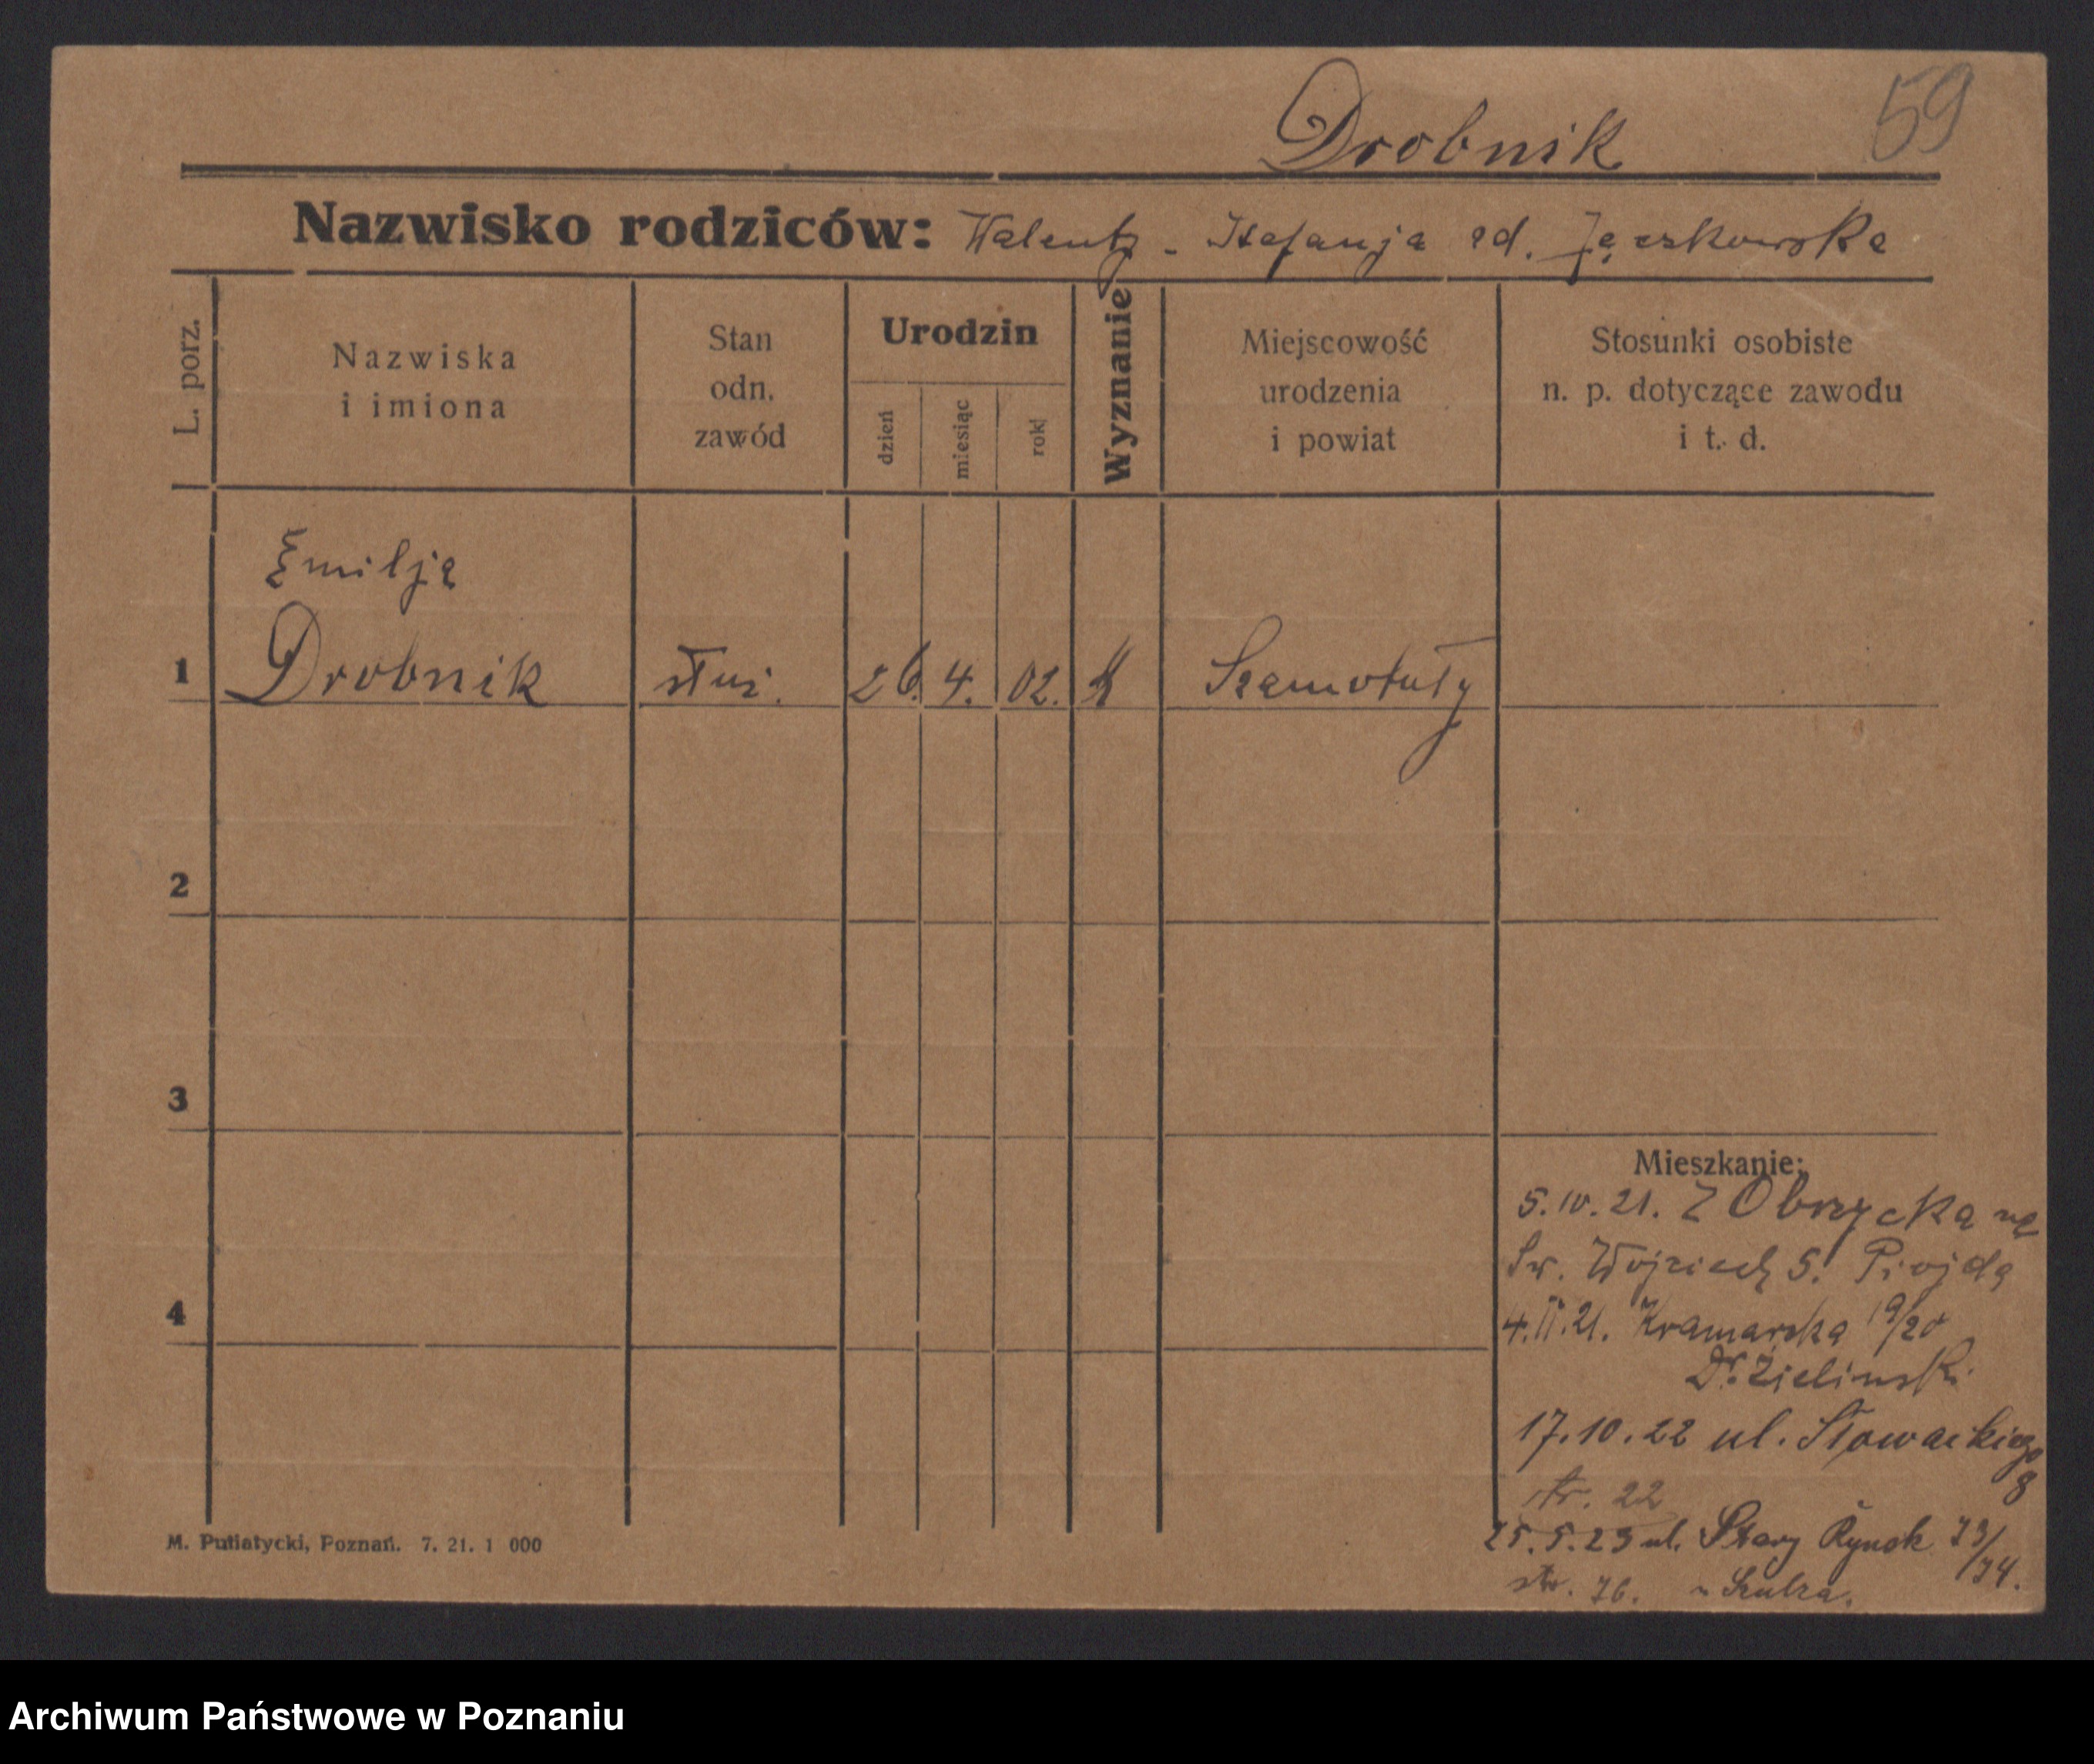 59
Drobnik
Nazwisko rodziców: Walenty - Stefanja
L. porz.
Nazwiska
i imiona
Stan
odn.
zawód
Urodzin
dzień
miesiąc
rok
Wyznanie
Miejscowość
urodzenia
i powiat
Stosunki osobiste
n. p. dotyczące zawodu
i t. d.
Emilja
1 Drobnik służ. 26. 4. 02. K Szamotuły
2
3
4
Mieszkanie:
5. IV. 21. Z Obrzycka na
Św. Wojciech 5.
4. II. 21. Kramarska 19/20
Dr. Zielinski
17.10.22 ul. Słowackiego
8
str. 22
25.5.23 ul. Stary Rynek 73/74.
str. 76. u Szulza.
M. Putiatycki, Poznań. 7. 21. 1 000
Archiwum Państwowe w Poznaniu